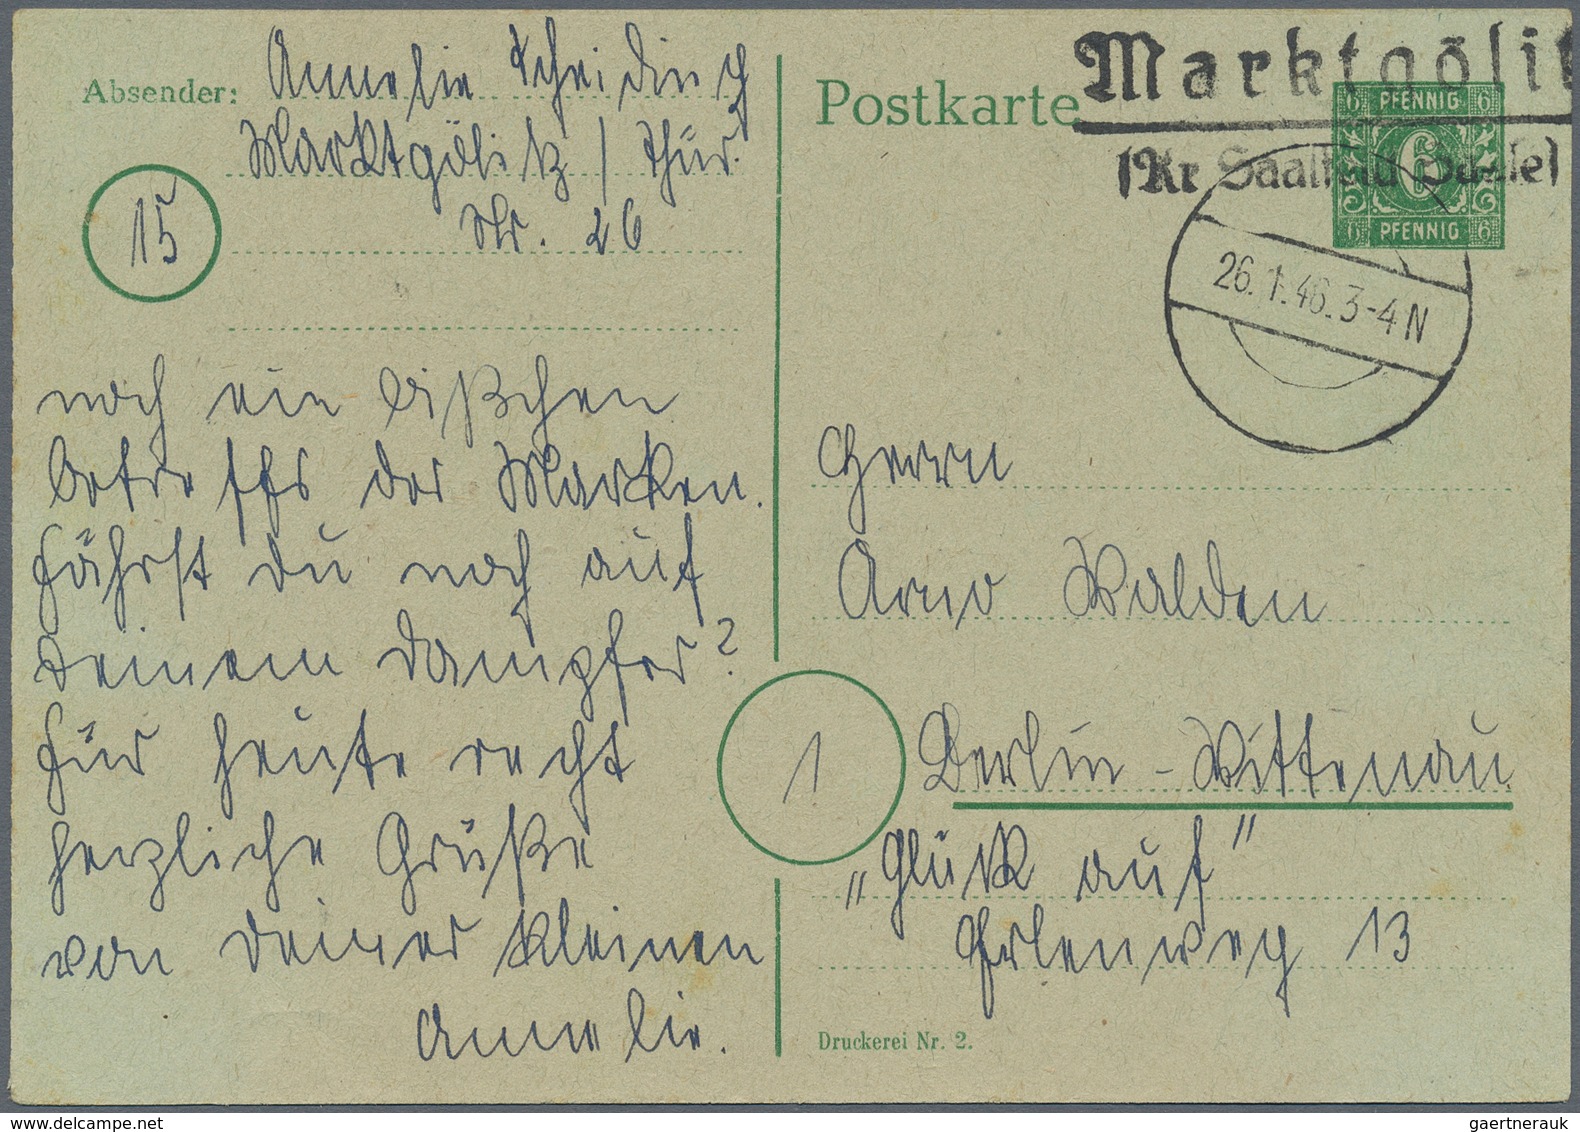 Absender: Annelie Scheidin
Marktgölitz / Thür.
Nr. 26
15
noch ein bißchen
betreffs der Marken.
Fährst du noch auf
Deinem Dampfer?
Für heute recht
herzliche Grüße
von Deiner kleinen
Annelie.
Postkarte
Marktgölit
(Kr Saalfeld Saale)
6 PFENNIG 6
6
6 PFENNIG 6
26.1.46.3-4 N
Herrn
Arno Walden
1
Berlin-Wittenau
„Glück auf"
Erlenweg 13
Druckerei Nr. 2.
gaertnerauk